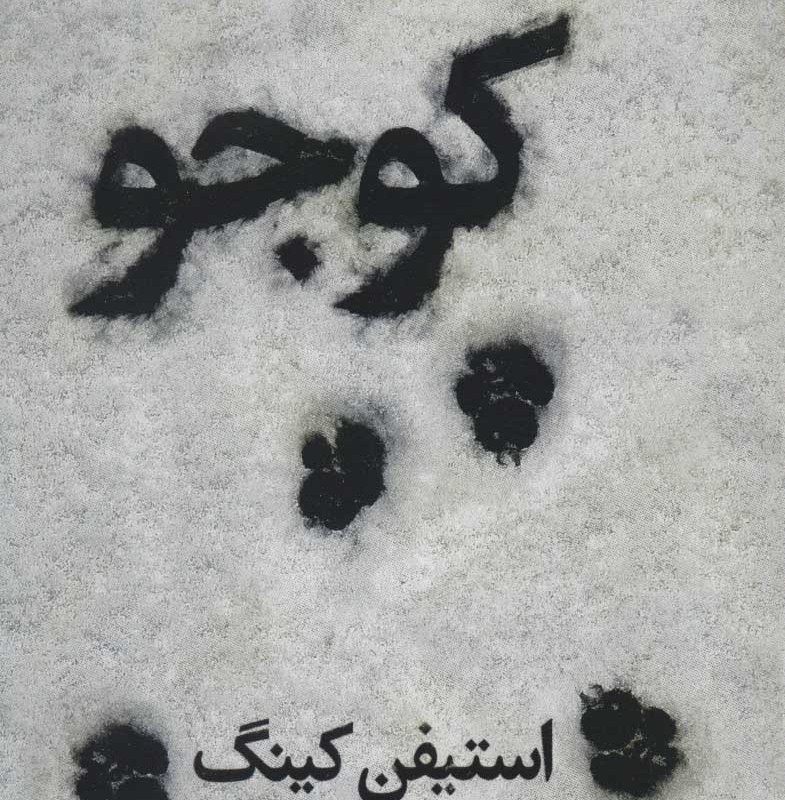 کوجو
استیفن کینگ